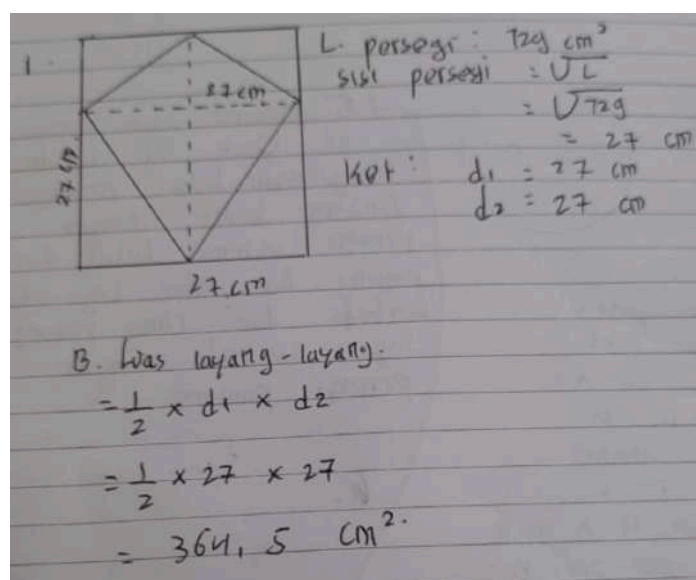 1.
27 cm
27 cm
27 cm
L. persegi : 729 cm²
sisi persegi = √L
= √729
= 27 cm
Ket : d1 = 27 cm
d2 = 27 cm
B. Luas layang-layang.
= 1/2 × d1 × d2
= 1/2 × 27 × 27
= 364,5 cm².